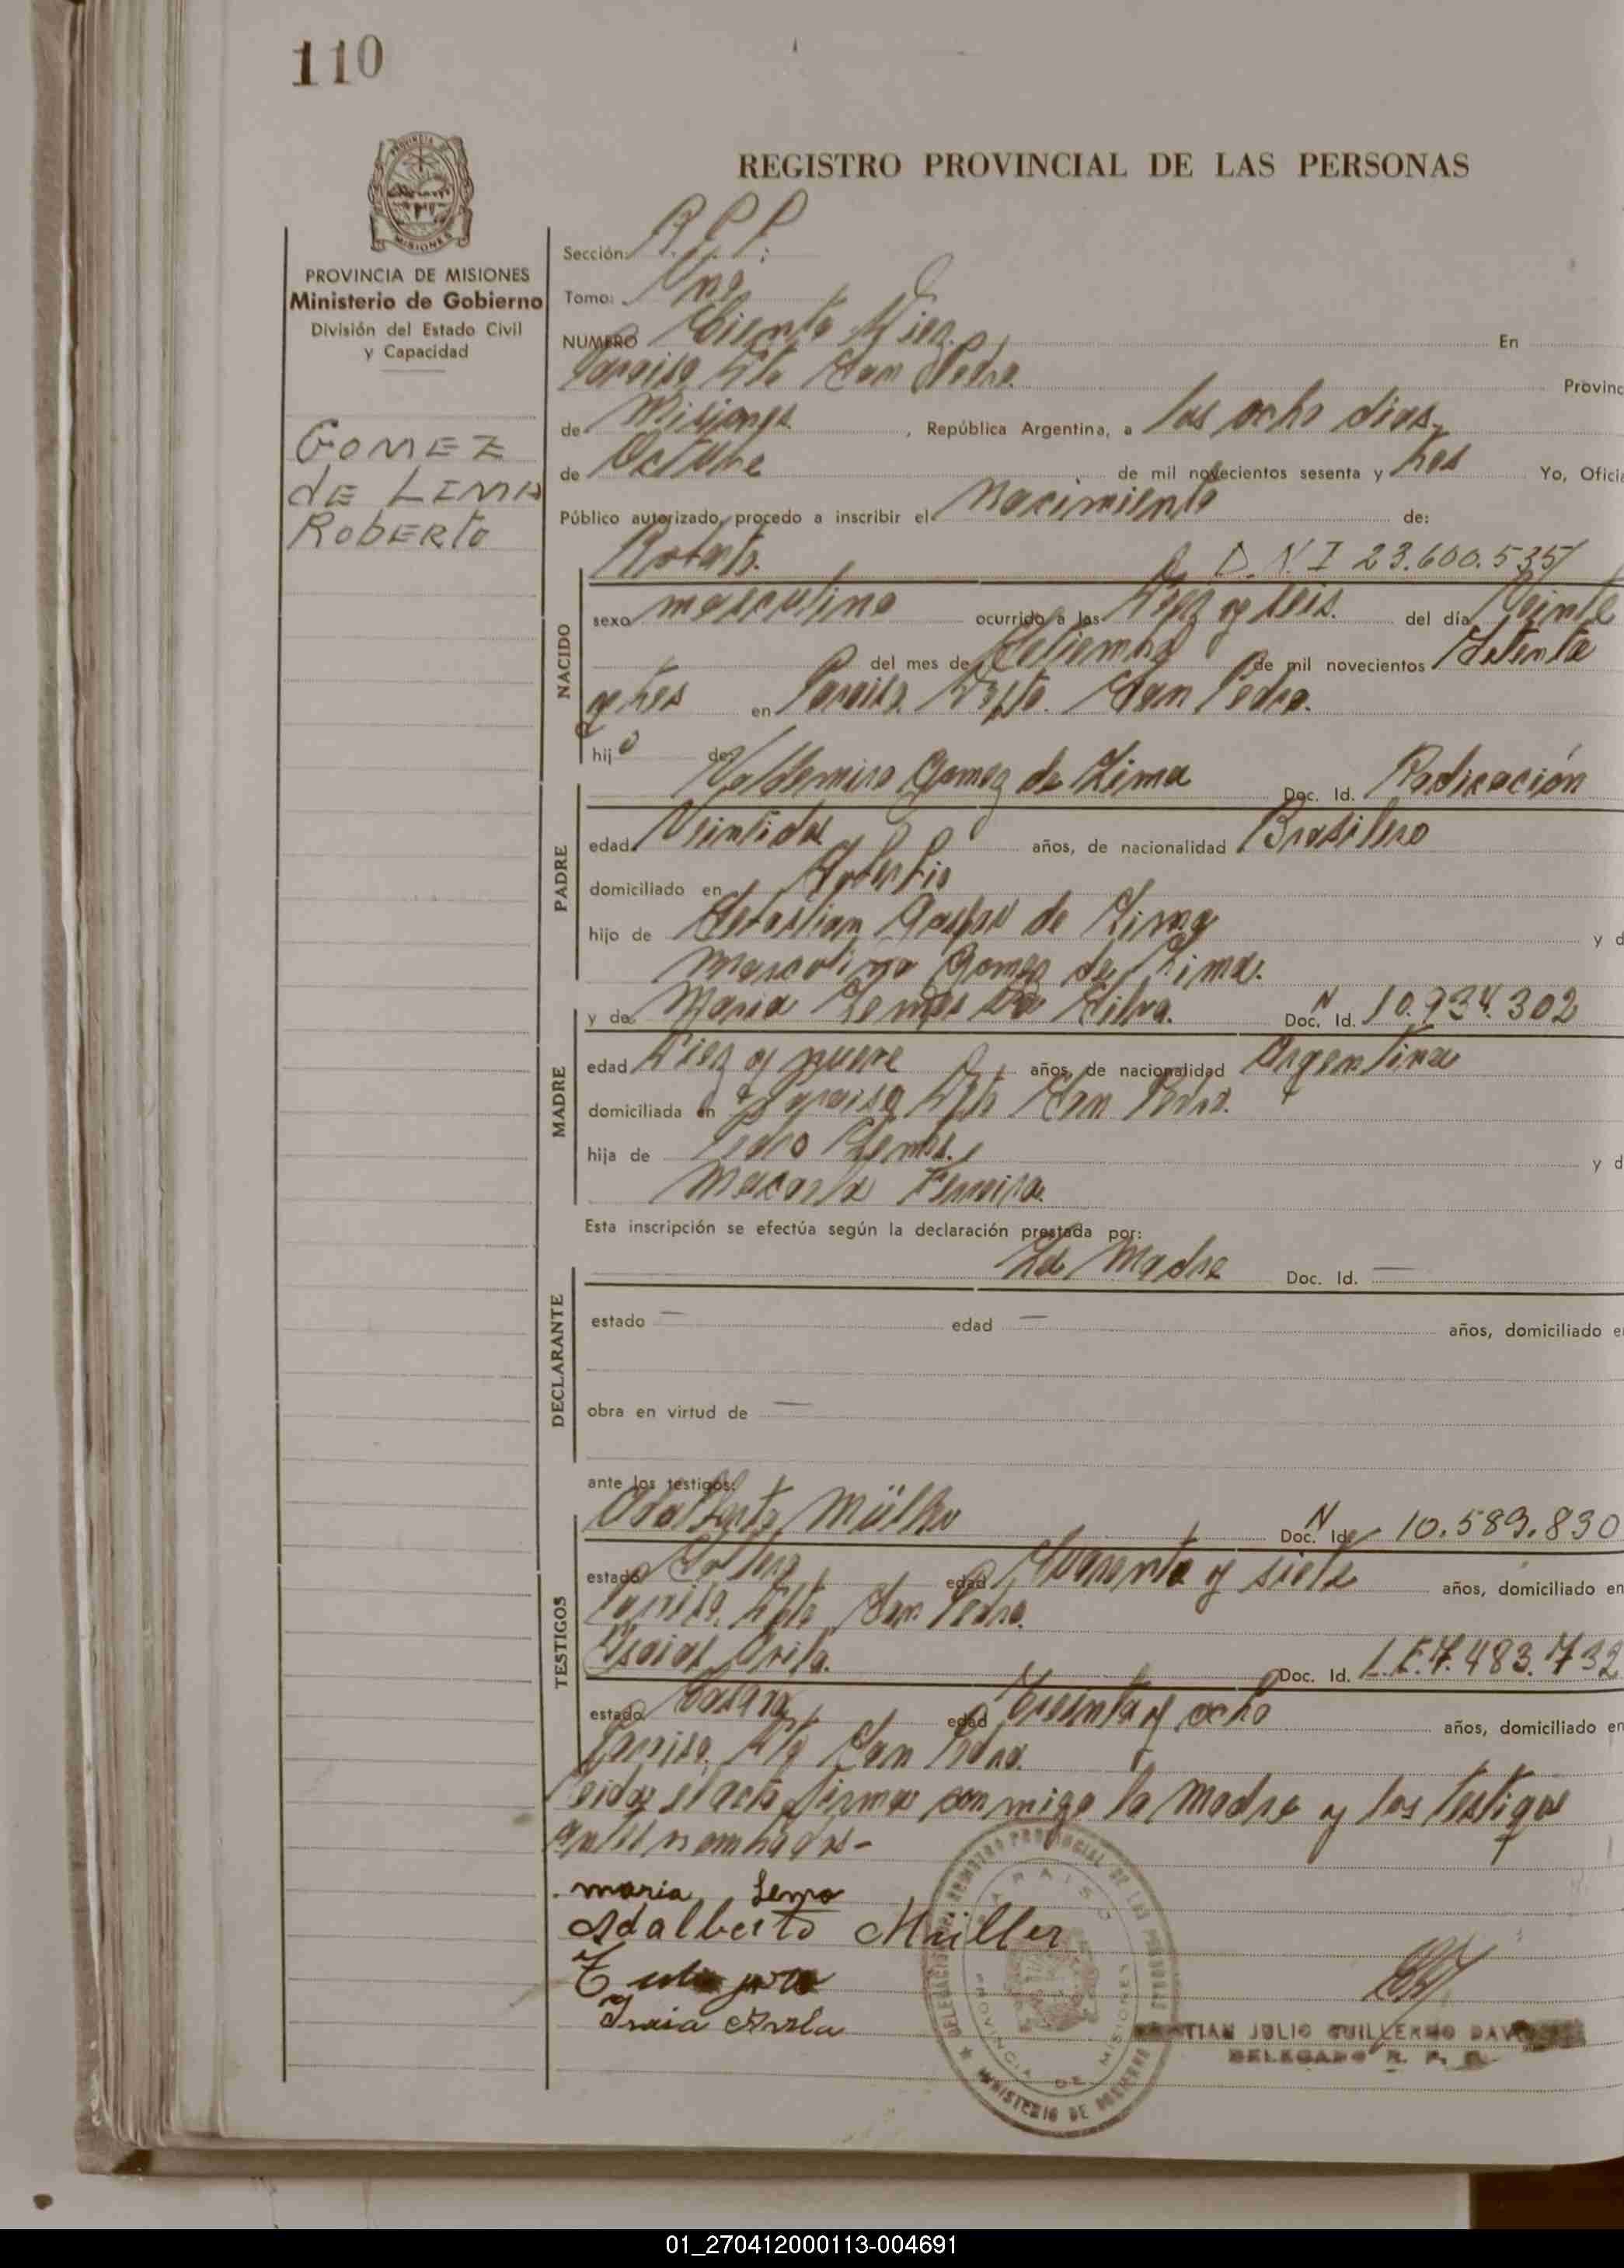 110
REGISTRO PROVINCIAL DE LAS PERSONAS
PROVINCIA DE MISIONES
Ministerio de Gobierno
División del Estado Civil
y Capacidad
GOMEZ
dE LIMA
RobERto
Sección: R.P.P.
Tomo: Uno
NUMERO Ciento Diez. En
Paraiso Dto San Pedro. Provinc
de Misiones , República Argentina, a los ocho dias
de Octubre de mil novecientos sesenta y tres Yo, Oficia
Público autorizado, procedo a inscribir el Nacimiento de:
Roberto. D.N.I 23.600.535/
NACIDO
sexo masculino ocurrido a las Diez y seis. del día Veinte
del mes de Setiembre de mil novecientos Setenta
y tres en Paraiso. Dpto. San Pedro.
hijo de
Valdemiro Gomez de Lima Doc. Id. Radicación
PADRE
edad Veintidos años, de nacionalidad Brasilero
domiciliado en
hijo de Sebastian de Lima y d
Gomez de Lima.
y de Maria Lemos Da Silva. Doc. N Id. 10.934.302
MADRE
edad Diez y nueve años, de nacionalidad Argentina
domiciliada en Paraiso Dpto San Pedro.
hija de Pedro Lemos. y d
Ferreira.
Esta inscripción se efectúa según la declaración prestada por:
La Madre Doc. Id. —
DECLARANTE
estado — edad — años, domiciliado en
obra en virtud de —
ante los testigos:
Adalberto Müller Doc. N Id. 10.589.830
TESTIGOS
estado Soltero edad Cuarenta y siete años, domiciliado en
Paraiso. Dpto San Pedro.
Isaias Avila. Doc. Id. L.E.7.483.732
estado Casado edad Treinta y ocho años, domiciliado en
Paraiso. Dto San Pedro.
Leida el acta firman conmigo la Madre y los testigos
antes nombrados-
maria Lemo
Adalberto Müller
DELEGACION REGISTRO PROVINCIAL DE LAS PERSONAS
PARAISO
PROVINCIA DE MISIONES
MINISTERIO DE GOBIERNO
TIAN JULIO GUILLERMO DAV
DELEGADO R. P. P.
01_270412000113-004691